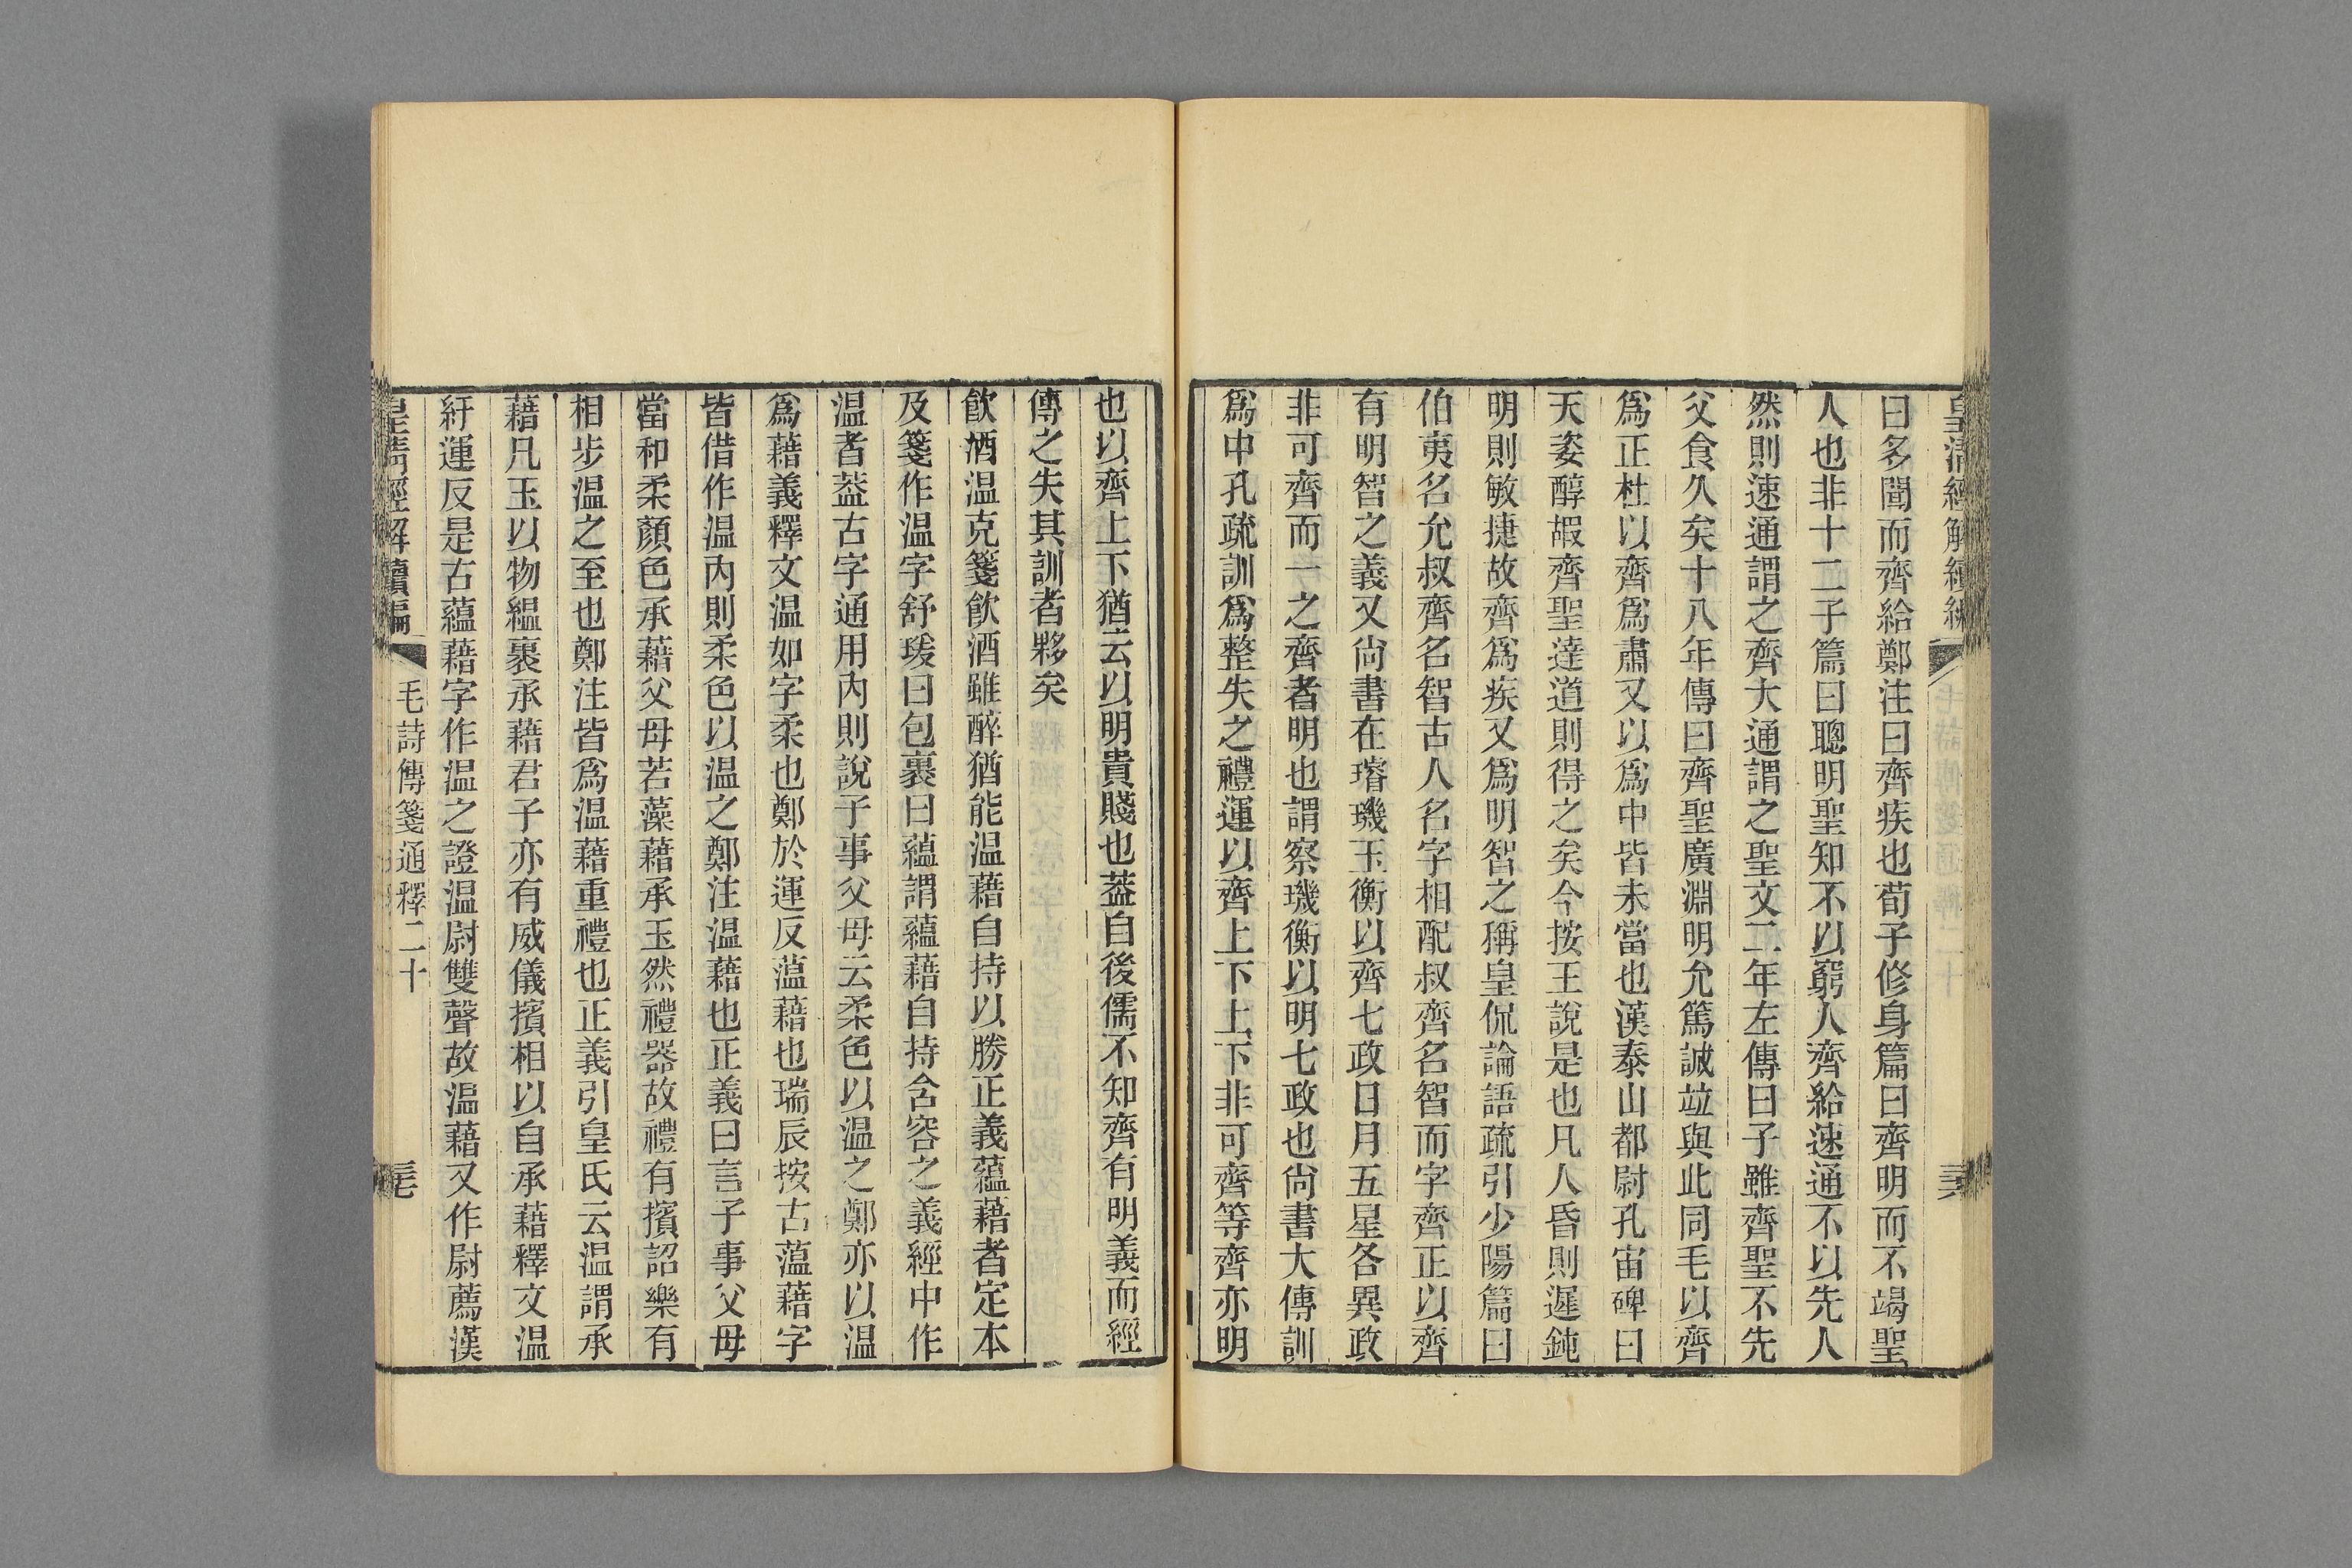 皇清經解續編
曰多聞而齊給鄭注曰齊疾也荀子修身篇曰齊明而不竭聖
人也非十二子篇曰聰明聖知不以窮人齊給速通不以先人
然則速通謂之齊大通謂之聖文二年左傳曰子雖齊聖不先
父食久矣十八年傳曰齊聖廣淵明允篤誠竝與此同毛以齊
爲正杜以齊爲肅又以爲中皆未當也漢泰山都尉孔宙碑曰
天姿醇嘏齊聖達道則得之矣今按王說是也凡人昏則遲鈍
明則敏捷故齊爲疾又爲明智之稱皇侃論語疏引少陽篇曰
伯夷名允叔齊名智古人名字相配叔齊名智而字齊正以齊
有明智之義又尙書在璿璣玉衡以齊七政日月五星各異政
非可齊而一之齊者明也謂察璣衡以明七政也尙書大傳訓
爲中孔疏訓爲整失之禮運以齊上下上下非可齊等齊亦明
也以齊上下猶云以明貴賤也葢自後儒不知齊有明義而經
傳之失其訓者夥矣
飮酒温克箋飮酒雖醉猶能温藉自持以勝正義蘊藉者定本
及箋作温字舒瑗曰包裹曰蘊謂蘊藉自持含容之義經中作
温者葢古字通用內則說子事父母云柔色以温之鄭亦以温
爲藉義釋文温如字柔也鄭於運反薀藉也瑞辰按古薀藉字
皆借作温內則柔色以温之鄭注温藉也正義曰言子事父母
當和柔顏色承藉父母若藻藉承玉然禮器故禮有擯詔樂有
相步温之至也鄭注皆爲温藉重禮也正義引皇氏云温謂承
藉凡玉以物縕裹承藉君子亦有威儀擯相以自承藉釋文温
紆運反是古蘊藉字作温之證温尉雙聲故温藉又作尉薦漢
皇淸經解續編 毛詩傳箋通釋二十